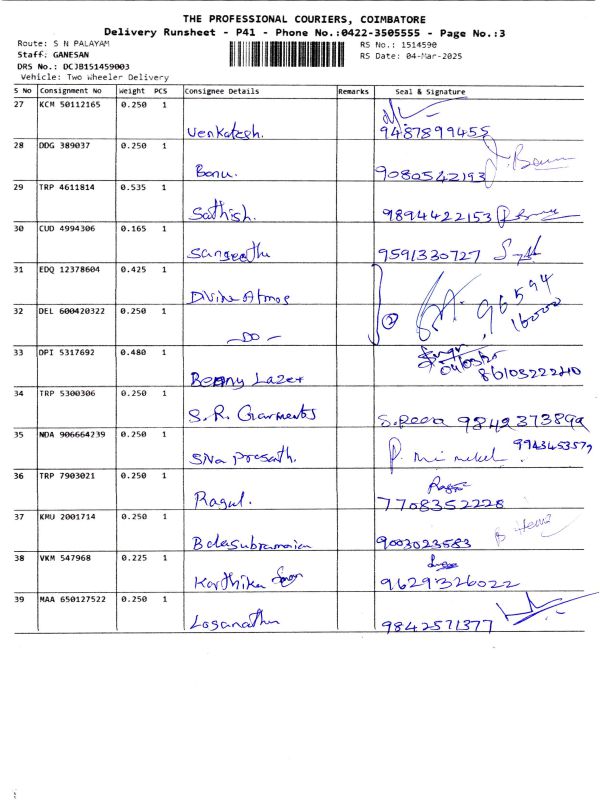 THE PROFESSIONAL COURIERS, COIMBATORE
Delivery Runsheet - P41 - Phone No.:0422-3505555 - Page No.:3
Route: S N PALAYAM
RS No.: 1514590
Staff: GANESAN
RS Date: 04-Mar-2025
DRS No.: DCJB151459003
Vehicle: Two Wheeler Delivery
S No Consignment No Weight PCS Consignee Details Remarks Seal & Signature
27 KCM 50112165 0.250 1
Venkatesh. 9487899455
28 DDG 389037 0.250 1
Banu. 9080542193
29 TRP 4611814 0.535 1
Sathish. 9894422153
30 CUD 4994306 0.165 1
Sangeetha 9591330727
31 EDQ 12378604 0.425 1
Divine Atmos
96594
16000
32 DEL 600420322 0.250 1
-DO- 2
33 DPI 5317692 0.480 1
04/03/25
Benny Lazer 8610322240
34 TRP 5300306 0.250 1
S.R. Garments 9842373899
35 NDA 906664239 0.250 1
9943453579
SNa Prasath.
36 TRP 7903021 0.250 1
Ragul. 7708352228
37 KMU 2001714 0.250 1
Balasubramaian 9003023583
38 VKM 547968 0.225 1
Karthika 9629326022
39 MAA 650127522 0.250 1
Loganathn 9842571377